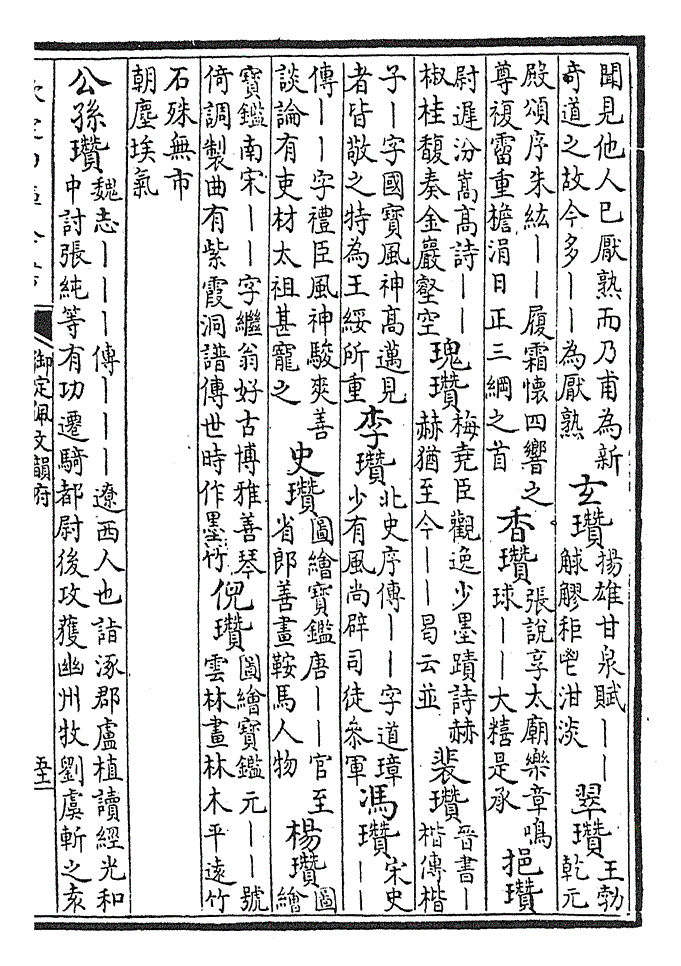 聞見他人已厭熟而乃甫為新
奇道之故今多——為厭熟
玄瓚
揚雄甘泉賦——
觩䚧秬鬯泔淡
翠瓚
王勃
乾元
殿頌序朱紘——履霜懷四響之
尊復霤重檐涓日正三綱之首
香瓚
張說享太廟樂章鳴
球——大糦是承
挹瓚
尉遲汾嵩髙詩——
椒桂馥奏金嚴壑空
瑰瓚
梅堯臣觀逸少墨蹟詩赫
赫猶至今——曷云並
裴瓚
晉書—
楷傳楷
子—字國寶風神髙邁見
者皆敬之特為王綏所重
李瓚
北史序傳——字道璋
少有風尚辟司徒叅軍
馮瓚
宋史
——
傳——字禮臣風神駿爽善
談論有吏材太祖甚寵之
史瓚
圖繪寶鑑唐——官至
省郎善畫鞍馬人物
楊瓚
圖
繪
寶鑑南宋——字繼翁好古博雅善琴
倚調製曲有紫霞洞譜傳世時作墨竹
倪瓚
圖繪寶鑑元——號
雲林畫林木平遠竹
石殊無市
朝塵埃氣
公孫瓚
魏志———傳———遼西人也詣涿郡盧植讀經光和
中討張純等有功遷騎都尉後攻獲幽州牧劉虞斬之袁
御定佩文韻府